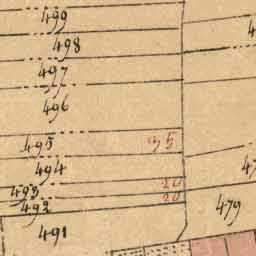 499
498
497
496
495
494
493
20
492
20
479
491